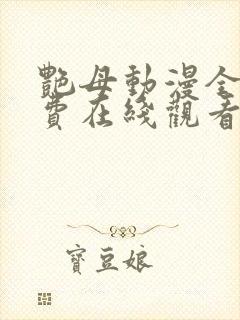 艷母動漫全
費在綫觀看
寶豆娘